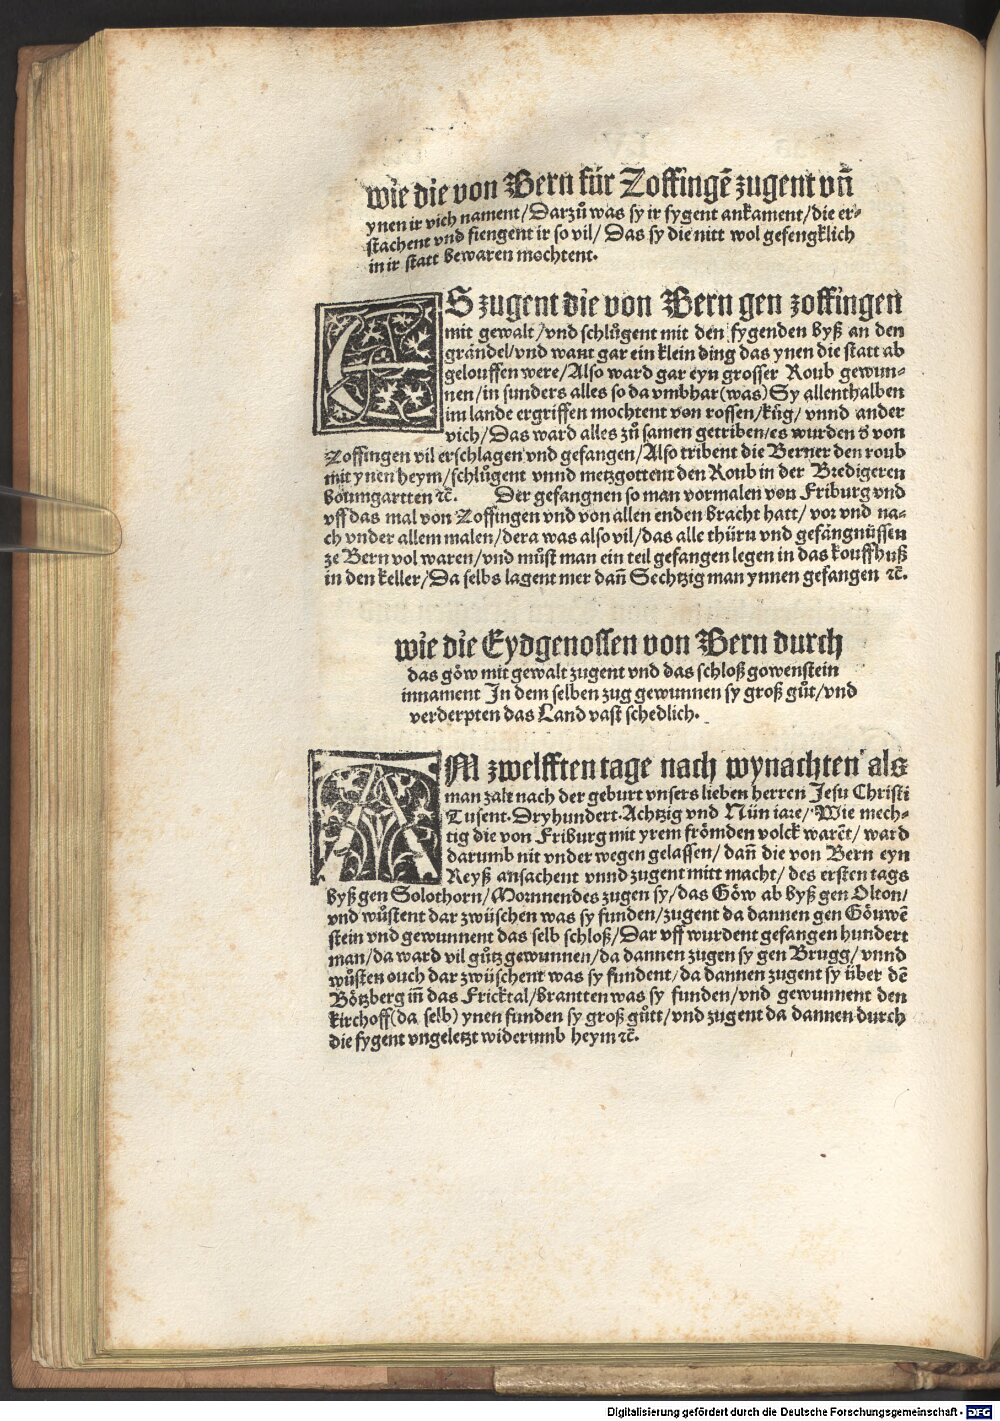 wie die von Bern für Zoffingē zugent vñ
ynen ir vich nament/Darzů was sy ir fygent ankament/die er-
stachent vnd fiengent ir so vil/ Das sy die nitt wol gefengklich
in ir statt bewaren mochtent.
ES zugent die von Bern gen zoffingen
mit gewalt/vnd schlůgent mit den fygenden byß an den
grändel/vnd want gar ein klein ding das ynen die statt ab
gelouffen were/Also ward gar eyn grosser Roub gewun-
nen/in sunders alles so da vmbhar(was)Sy allenthalben
im lande ergriffen mochtent von rossen/kůg/ vnnd ander
vich/Das ward alles zů samen getriben/es wurden d̕ von
Zoffingen vil erschlagen vnd gefangen/Also tribent die Berner den roub
mit ynen heym/schlůgent vnnd metzgottent den Roub in der Bredigeren
boumgartten ꝛc̄. Der gefangnen so man vormalen von Friburg vnd
vff das mal von Zoffingen vnd von allen enden bracht hatt/ vor vnd na-
ch vnder allem malen/dera was also vil/das alle thürn vnd gefängnüssen
ze Bern vol waren/vnd můst man ein teil gefangen legen in das kouffhuß
in den keller/Da selbs lagent mer dañ Sechtzig man ynnen gefangen ꝛc̄.
wie die Eydgenossen von Bern durch
das göw mit gewalt zugent vnd das schloß gowenstein
innament In dem selben zug gewunnen sy groß gůt/vnd
verderpten das Land vast schedlich.
AM zwelfften tage nach wynachten als
man zalt nach der geburt vnsers lieben herren Jesu Christi
Tusent.Dryhundert.Achtzig vnd Nün iare/Wie mech-
tig die von Friburg mit yrem frömden volck warēt/ ward
darumb nit vnder wegen gelassen/ dañ die von Bern eyn
Reyß ansachent vnnd zugent mitt macht/ des ersten tags
byß gen Solothorn/Mornnendes zugen sy/das Göw ab byß gen Olton/
vnd wůstent dar zwüschen was sy funden/zugent da dannen gen Göuwē
stein vnd gewunnent das selb schloß/Dar vff wurdent gefangen hundert
man/da ward vil gůtz gewunnen/da dannen zugen sy gen Brugg/vnnd
wůsten ouch dar zwüschent was sy fundent/da dannen zugent sy über dē
Bötzberg iñ das Fricktal/brantten was sy funden/vnd gewunnent den
kirchoff(da selb) ynen funden sy groß gůtt/vnd zugent da dannen durch
die fygent vngeletzt widerumb heym ꝛc̄.
Digitalisierung gefördert durch die Deutsche Forschungsgemeinschaft - DFG